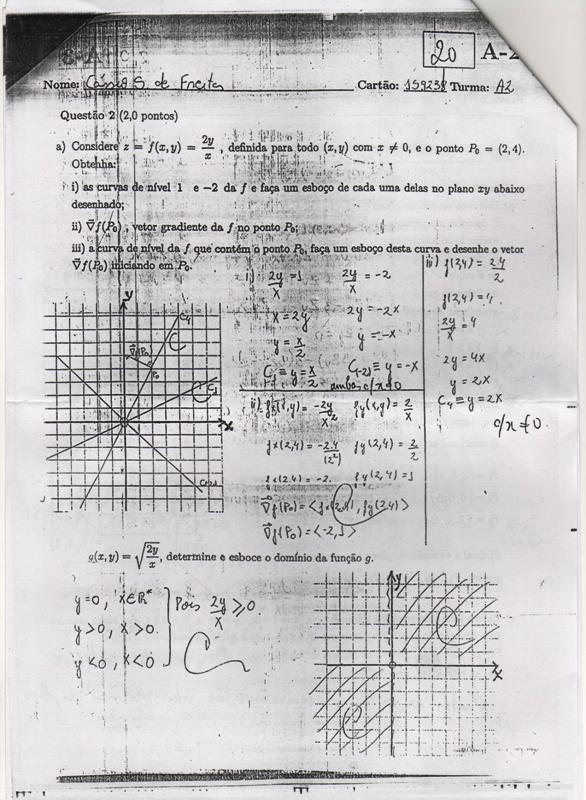 20
A-2
Nome: Cássio S. de Freitas Cartão: 159238 Turma: A2
Questão 2 (2,0 pontos)
a) Considere z = f(x,y) = 2y/x , definida para todo (x,y) com x ≠ 0, e o ponto P₀ = (2,4).
Obtenha:
i) as curvas de nível 1 e −2 da f e faça um esboço de cada uma delas no plano xy abaixo
desenhado;
ii) ∇⃗f(P₀) , vetor gradiente da f no ponto P₀;
iii) a curva de nível da f que contém o ponto P₀, faça um esboço desta curva e desenhe o vetor
∇⃗f(P₀) iniciando em P₀.
i) 2y/x = 1
x = 2y
y = x/2
C₁ ≡ y = x/2
2y/x = -2
2y = -2x
y = -x
C(-2) ≡ y = -x
ambas c/ x≠0
ii) fx(x,y) = -2y/x²
fx(2,4) = -2.4/(2²)
fx(2,4) = -2
fy(x,y) = 2/x
fy(2,4) = 2/2
fy(2,4) = 1
∇⃗f(P₀) = <fx(2,4), fy(2,4)>
∇⃗f(P₀) = <-2,1>
iii) f(2,4) = 2.4/2
f(2,4) = 4
2y/x = 4
2y = 4x
y = 2x
C₄ ≡ y = 2x
c/ x ≠ 0.
y
C₄
∇⃗f(P₀)
P₀
C₁
x
C(-2)
g(x,y) = √(2y/x), determine e esboce o domínio da função g.
y=0, x∈R*
y>0, x>0
y<0, x<0
Pois 2y/x ≥ 0
y
x